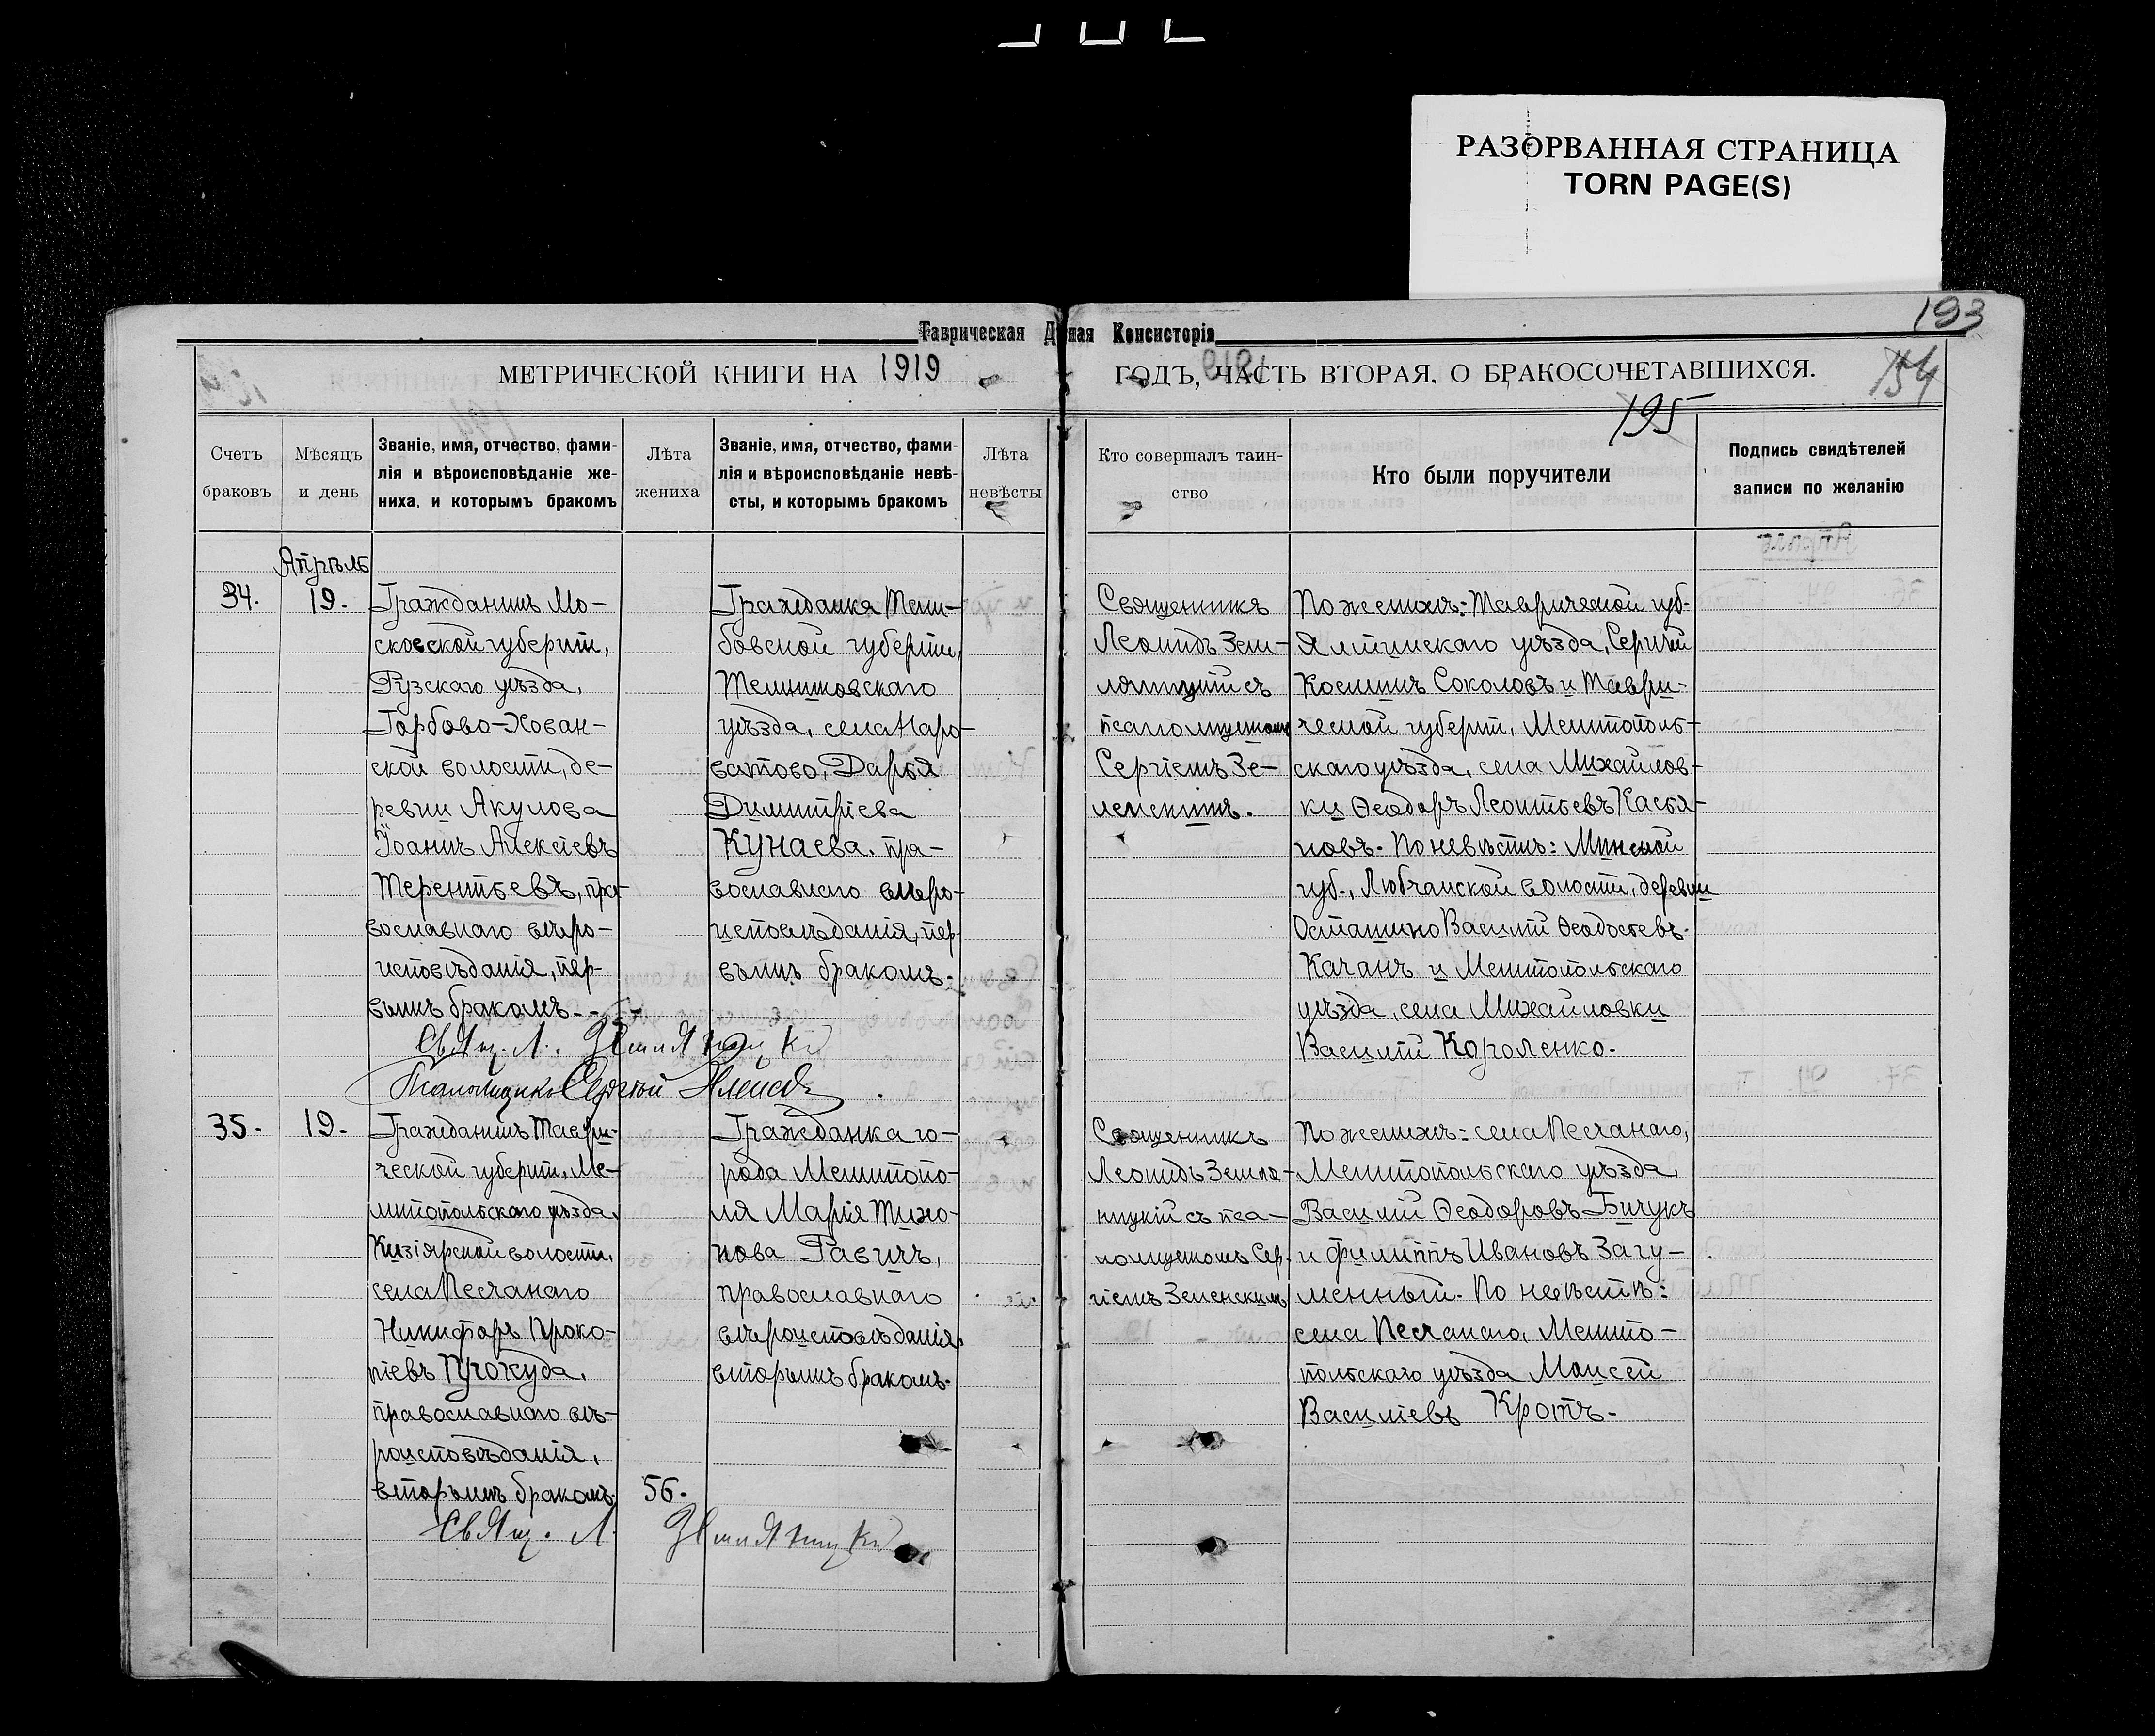 РАЗОРВАННАЯ СТРАНИЦА
TORN PAGE(S)
193
Таврическая Д ная Консисторія
МЕТРИЧЕСКОЙ КНИГИ НА 1919
ГОДЪ, ЧАСТЬ ВТОРАЯ, О БРАКОСОЧЕТАВШИХСЯ.
154
195
Счетъ
браковъ
Мѣсяцъ
и день
Званіе, имя, отчество, фами-
лія и вѣроисповѣданіе же-
ниха, и которымъ бракомъ
Лѣта
жениха
Званіе, имя, отчество, фами-
лія и вѣроисповѣданіе невѣ-
сты, и которымъ бракомъ
Лѣта
невѣсты
Кто совершалъ таин-
ство
Кто были поручители
Подпись свидѣтелей
записи по желанію
Апрѣль
34.
19.
Гражданинъ Мо-
сковской губерніи,
Рузскаго уѣзда,
Горбово-Хован-
ской волости, де-
ревни Акулова
Іоаннъ Алексіевъ
Терентьевъ, пра-
вославнаго вѣро-
исповѣданія, пер-
вымъ бракомъ.
Гражданка Там-
бовской губерніи,
Темниковскаго
уѣзда, села Наро-
ватово, Дарья
Димитріева
Кунаева, пра-
вославнаго вѣро-
исповѣданія, пер-
вымъ бракомъ.
Священникъ
Леонидъ Зем-
ляницкій съ
псаломщикомъ
Сергіемъ Зе-
ленскимъ.
По женихѣ: Таврической губ.
Ялтинскаго уѣзда, Сергій
Косминъ Соколовъ и Таври-
ческой губерніи, Мелитополь-
скаго уѣзда, села Михайлов-
ки Ѳеодоръ Леонтьевъ Касья-
новъ. По невѣстѣ: Минской
губ., Любчанской волости, деревни
Осташино Василій Ѳеодосьевъ
Качанъ и Мелитопольскаго
уѣзда, села Михайловки
Василій Короленко.
Свящ. Л. Земляницкій
Псаломщикъ Сергѣй
35.
19.
Гражданинъ Таври-
ческой губерніи, Ме-
литопольскаго уѣзда,
Кизіярской волости,
села Песчанаго
Никифоръ Проко-
піевъ Прокуда,
православнаго вѣ-
роисповѣданія,
вторымъ бракомъ.
56.
Гражданка го-
рода Мелитопо-
ля Марія Тихо-
нова Равичъ,
православнаго
вѣроисповѣданія,
вторымъ бракомъ.
Священникъ
Леонидъ Земля-
ницкій съ пса-
ломщикомъ Сер-
гіемъ Зеленскимъ
По женихѣ: села Песчанаго,
Мелитопольскаго уѣзда,
Василій Ѳеодоровъ Бичукъ
и Филиппъ Ивановъ Загу-
менный. По невѣстѣ:
села Песчанаго, Мелито-
польскаго уѣзда Моисей
Василіевъ Кротъ.
Свящ. Л. Земляницкій